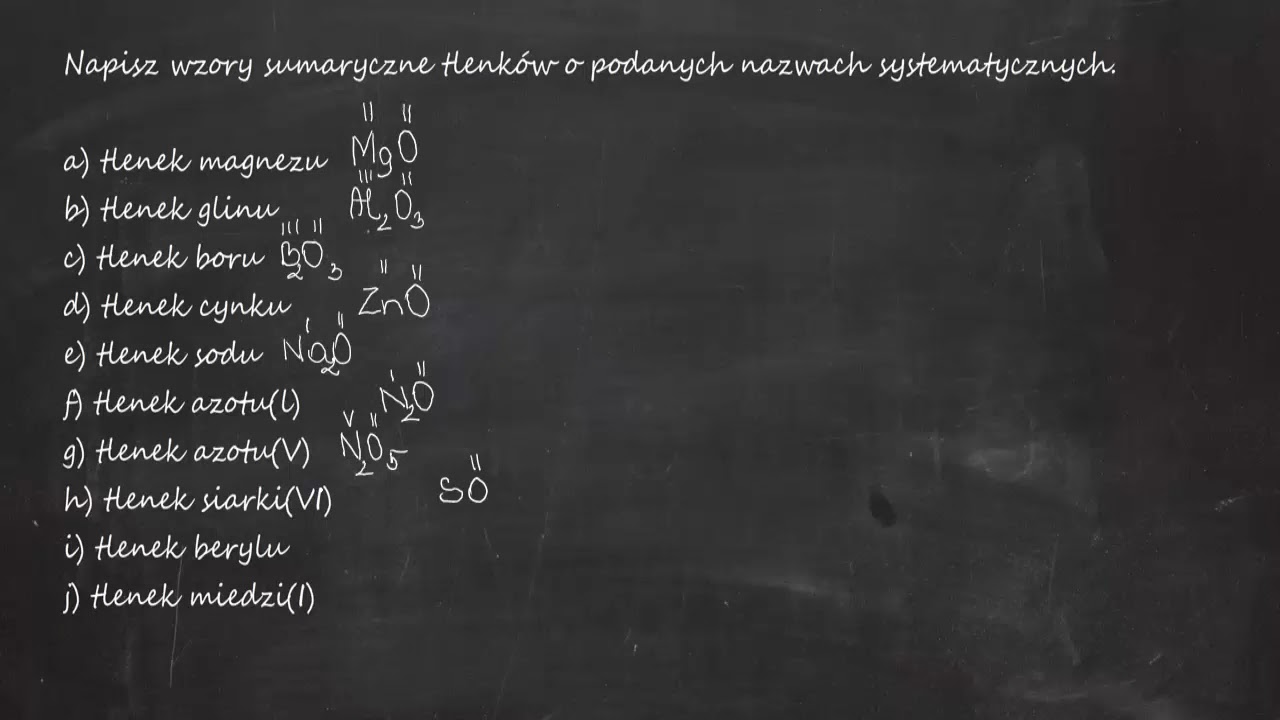 Napisz wzory sumaryczne tlenków o podanych nazwach systematycznych.
a) tlenek magnezu II II MgO
b) tlenek glinu III II Al2O3
c) tlenek boru III II B2O3
d) tlenek cynku II II ZnO
e) tlenek sodu I II Na2O
f) tlenek azotu(I) I II N2O
g) tlenek azotu(V) V II N2O5
h) tlenek siarki(VI) II SO
i) tlenek berylu
j) tlenek miedzi(I)